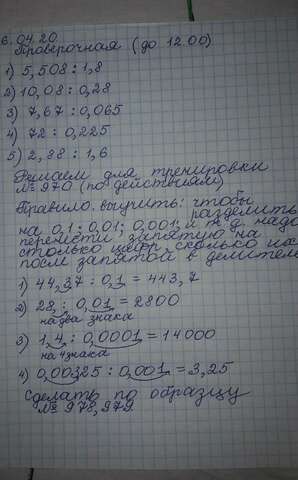 6.04.20
Проверочная (до 12.00)
1) 5,508 : 1,8
2) 10,08 : 0,28
3) 7,67 : 0,065
4) 72 : 0,225
5) 2,88 : 1,6
Решаем для тренировки
№ 970 (по действиям)
Правило. выучить: чтобы
разделить
на 0,1; 0,01; 0,001 и т д надо
перенести запятую на
столько цифр, сколько их
после запятой в делителе
1) 44,37 : 0,1 = 443,7
2) 28, : 0,01 = 2800
на два знака
3) 1,4 : 0,0001 = 14000
на 4 знака
4) 0,00325 : 0,001 = 3,25
Сделать по образцу
№ 978, 979